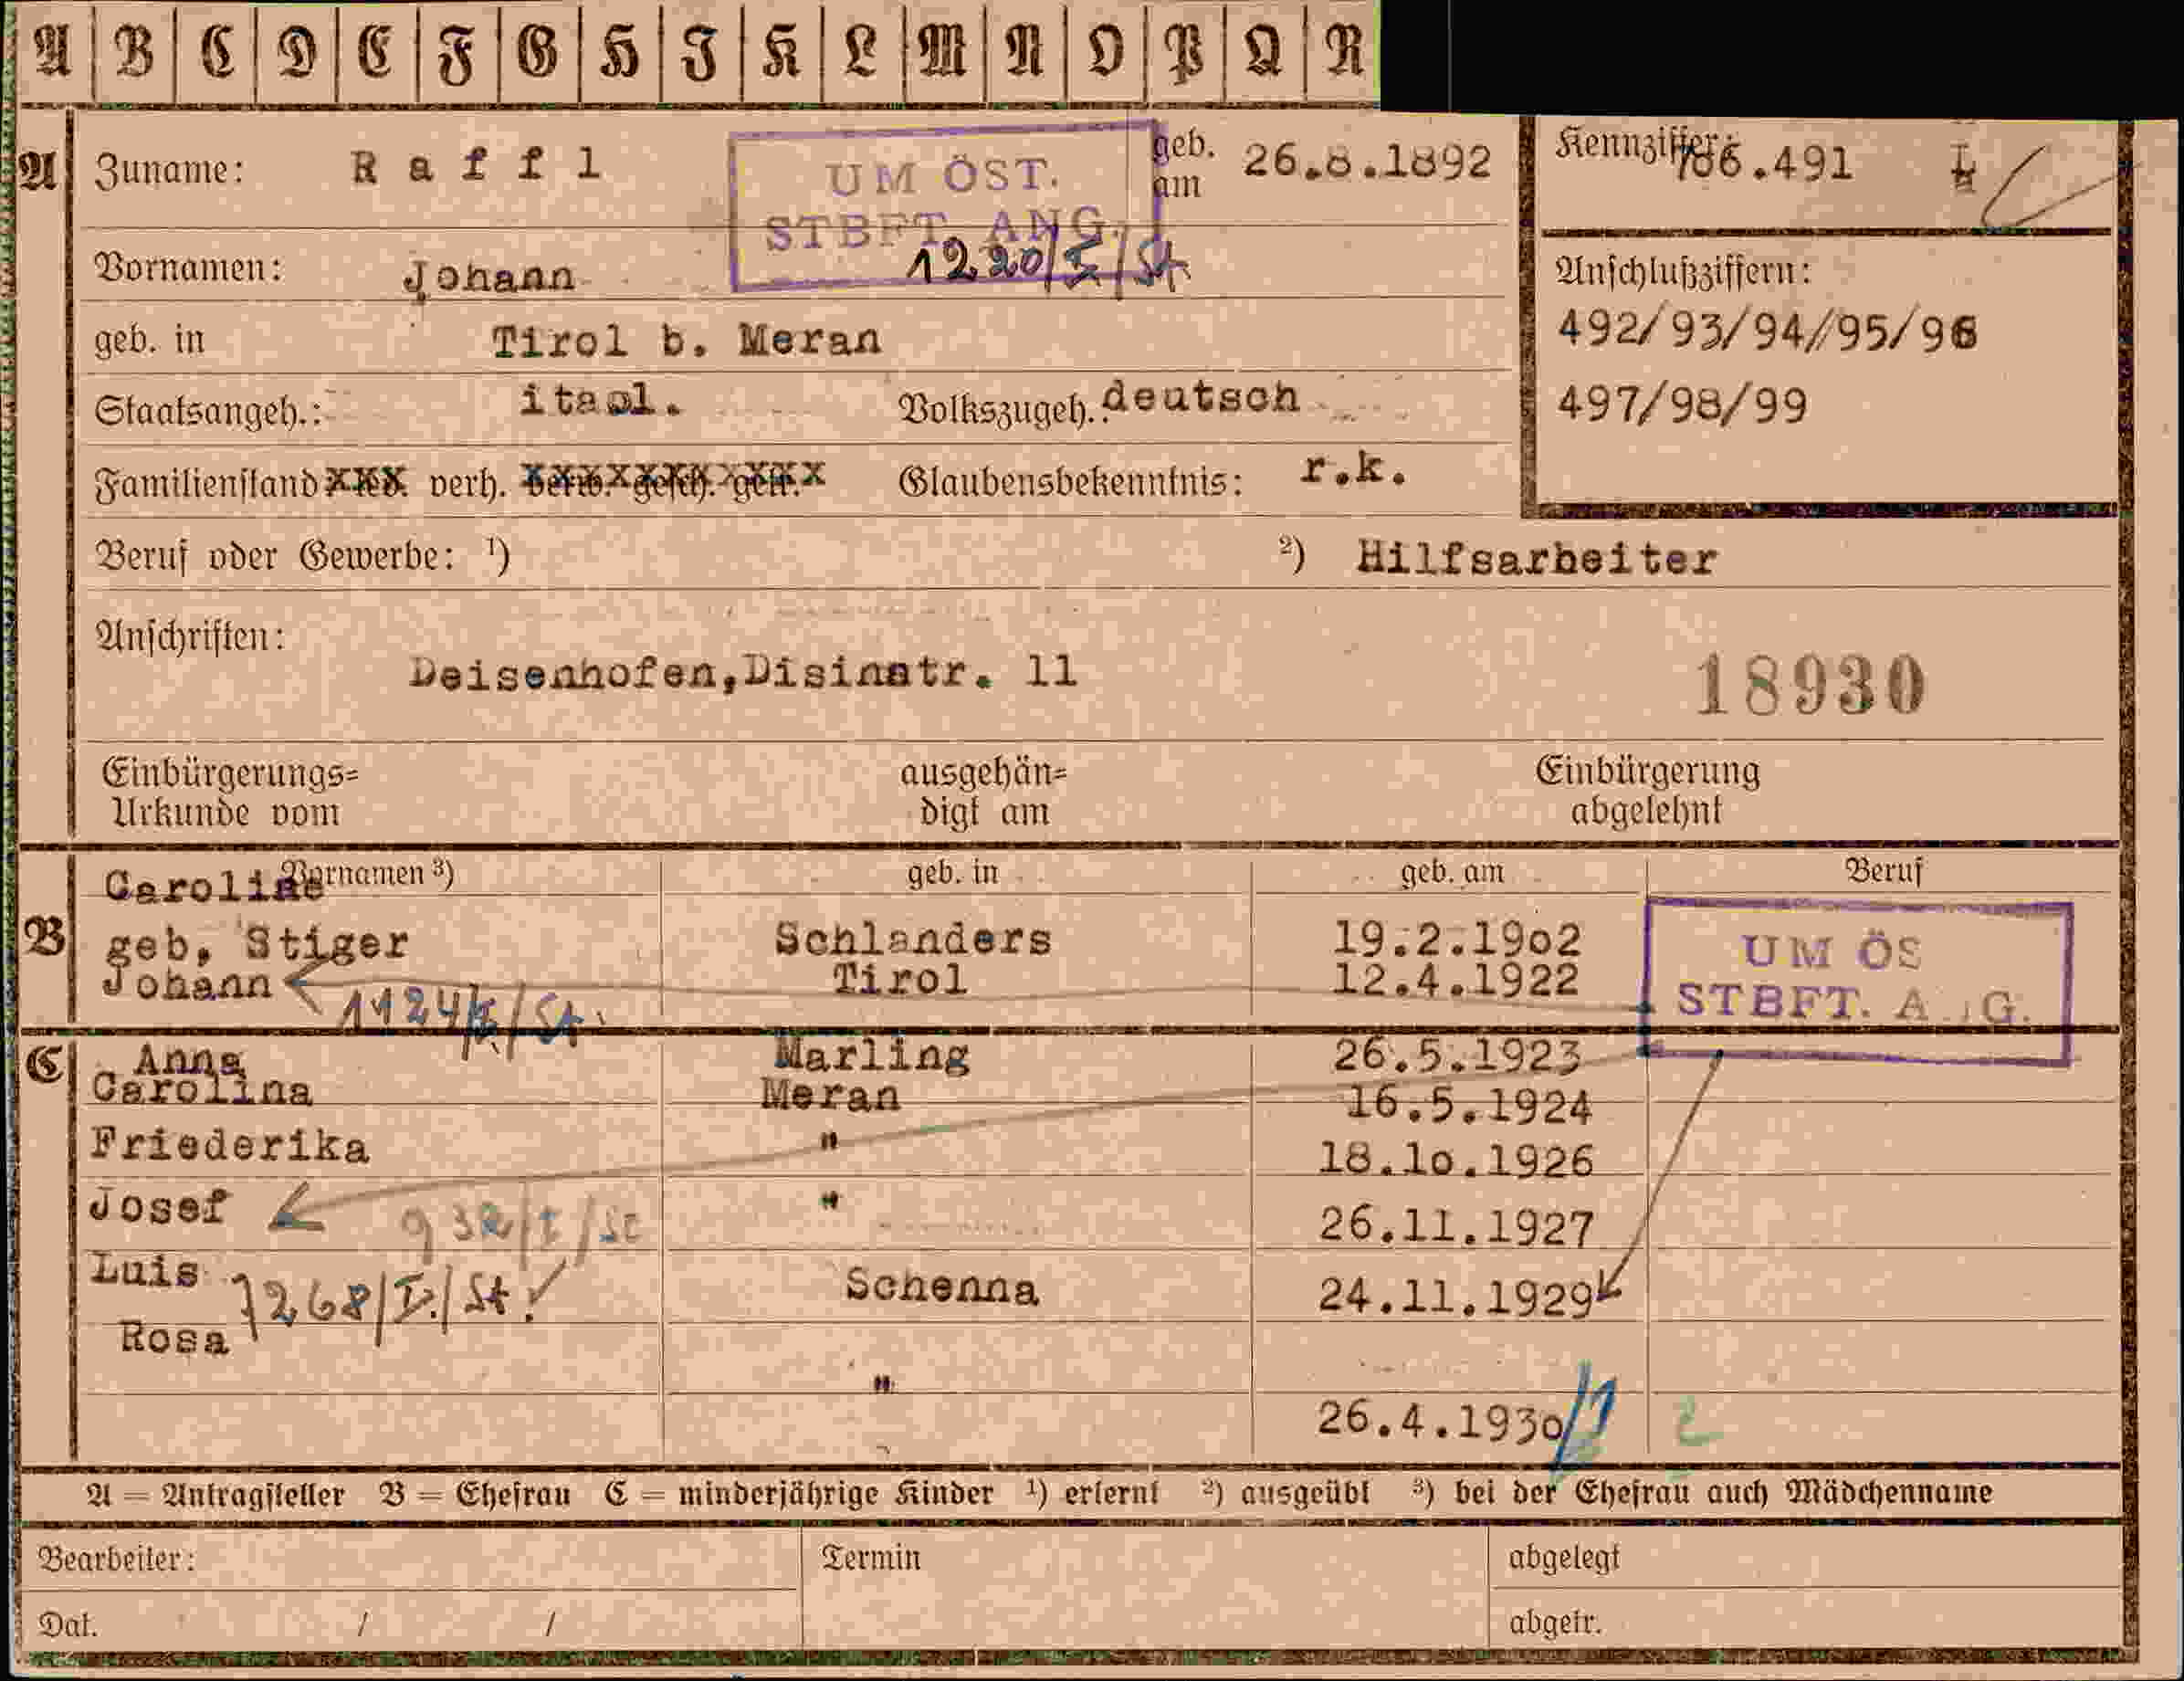 A B C D E F G H I K L M N O P Q R
A Zuname: Raffl geb. am 26.8.1892
UM ÖST.
STBFT. ANG.
1220/I/St
Kennziffer: 706.491 L
Vornamen: Johann
Anschlußziffern:
492/93/94//95/96
497/98/99
geb. in Tirol b. Meran
Staatsangeh.: itaol. Volkszugeh.: deutsch
Familienstand xxx verh. Glaubensbekenntnis: r.k.
Beruf oder Gewerbe: 1) 2) Hilfsarbeiter
Anschriften:
Deisenhofen,Disinstr. 11
18930
Einbürgerungs=
Urkunde vom
ausgehän=
digt am
Einbürgerung
abgelehnt
Vornamen 3) geb. in geb. am Beruf
Caroline
B geb. Stiger Schlanders 19.2.1902
Johann Tirol 12.4.1922
1124/I/St.
UM ÖS
STBFT. A G.
C Anna Marling 26.5.1923
Carolina Meran 16.5.1924
Friederika " 18.10.1926
Josef 932/I/St " 26.11.1927
Luis 1268/I./St. Schenna 24.11.1929
Rosa " 26.4.1930
A = Antragsteller B = Ehefrau C = minderjährige Kinder 1) erlernt 2) ausgeübt 3) bei der Ehefrau auch Mädchenname
Bearbeiter: Termin abgelegt
Dat. / / abgetr.